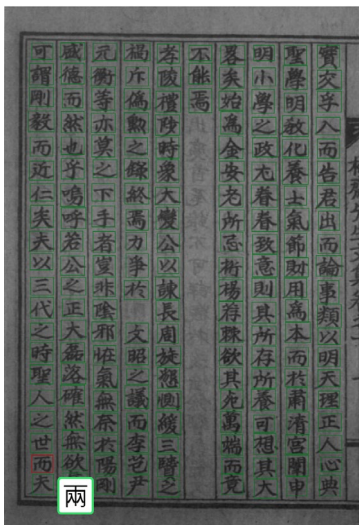 實交孚入而告君出而論事類以明天理正人心典
聖學明敎化養士氣節財用爲本而於肅淸宮闈申
明小學之政尤眷眷致意則其所存所養可想其大
畧矣始爲金安老所忌桁楊存棘欲其死萬端而竟
不能焉
孝陵禮陟時衆大變公以諫長周旋懇惻緩三時之
禍斥僞勳之錄終焉力爭於文昭之議而李芑尹
元衡等亦莫之下手者豈非陰邪怪氣無奈於陽剛
盛德而然也乎嗚呼若公之正大磊落確然無欲
可謂剛毅而近仁矣夫以三代之時聖人之世而天
兩